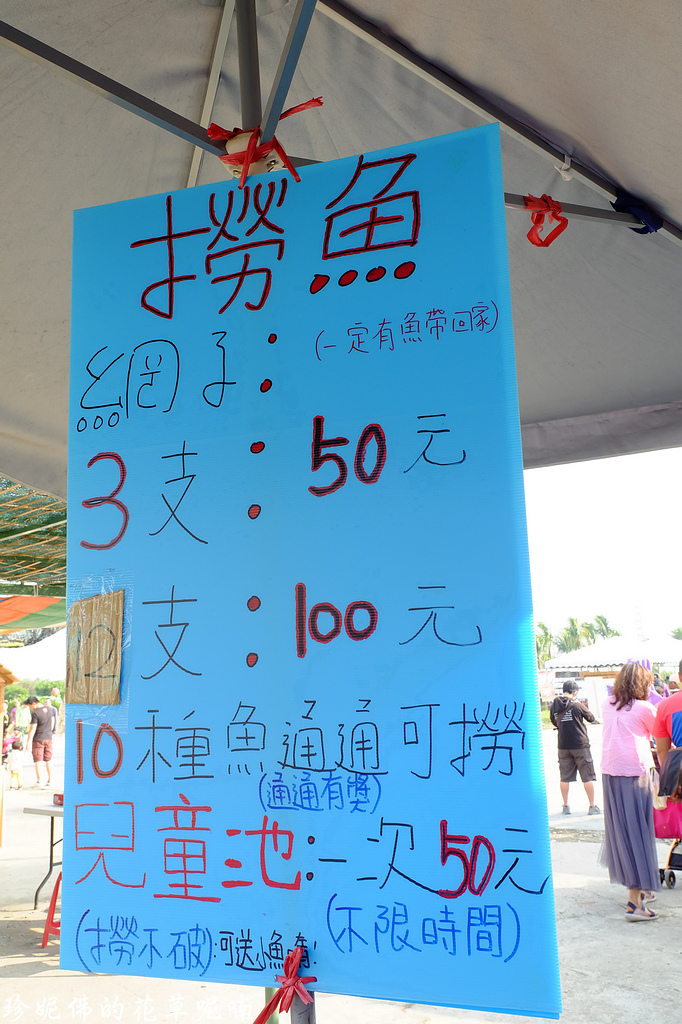 撈魚
(一定有魚帶回家)
網子:
3支:50元
12支:100元
10種魚通通可撈
(通通有獎)
兒童池:一次50元
(撈不破)·可送小魚喔!
(不限時間)
珍妮佛的花草呢喃